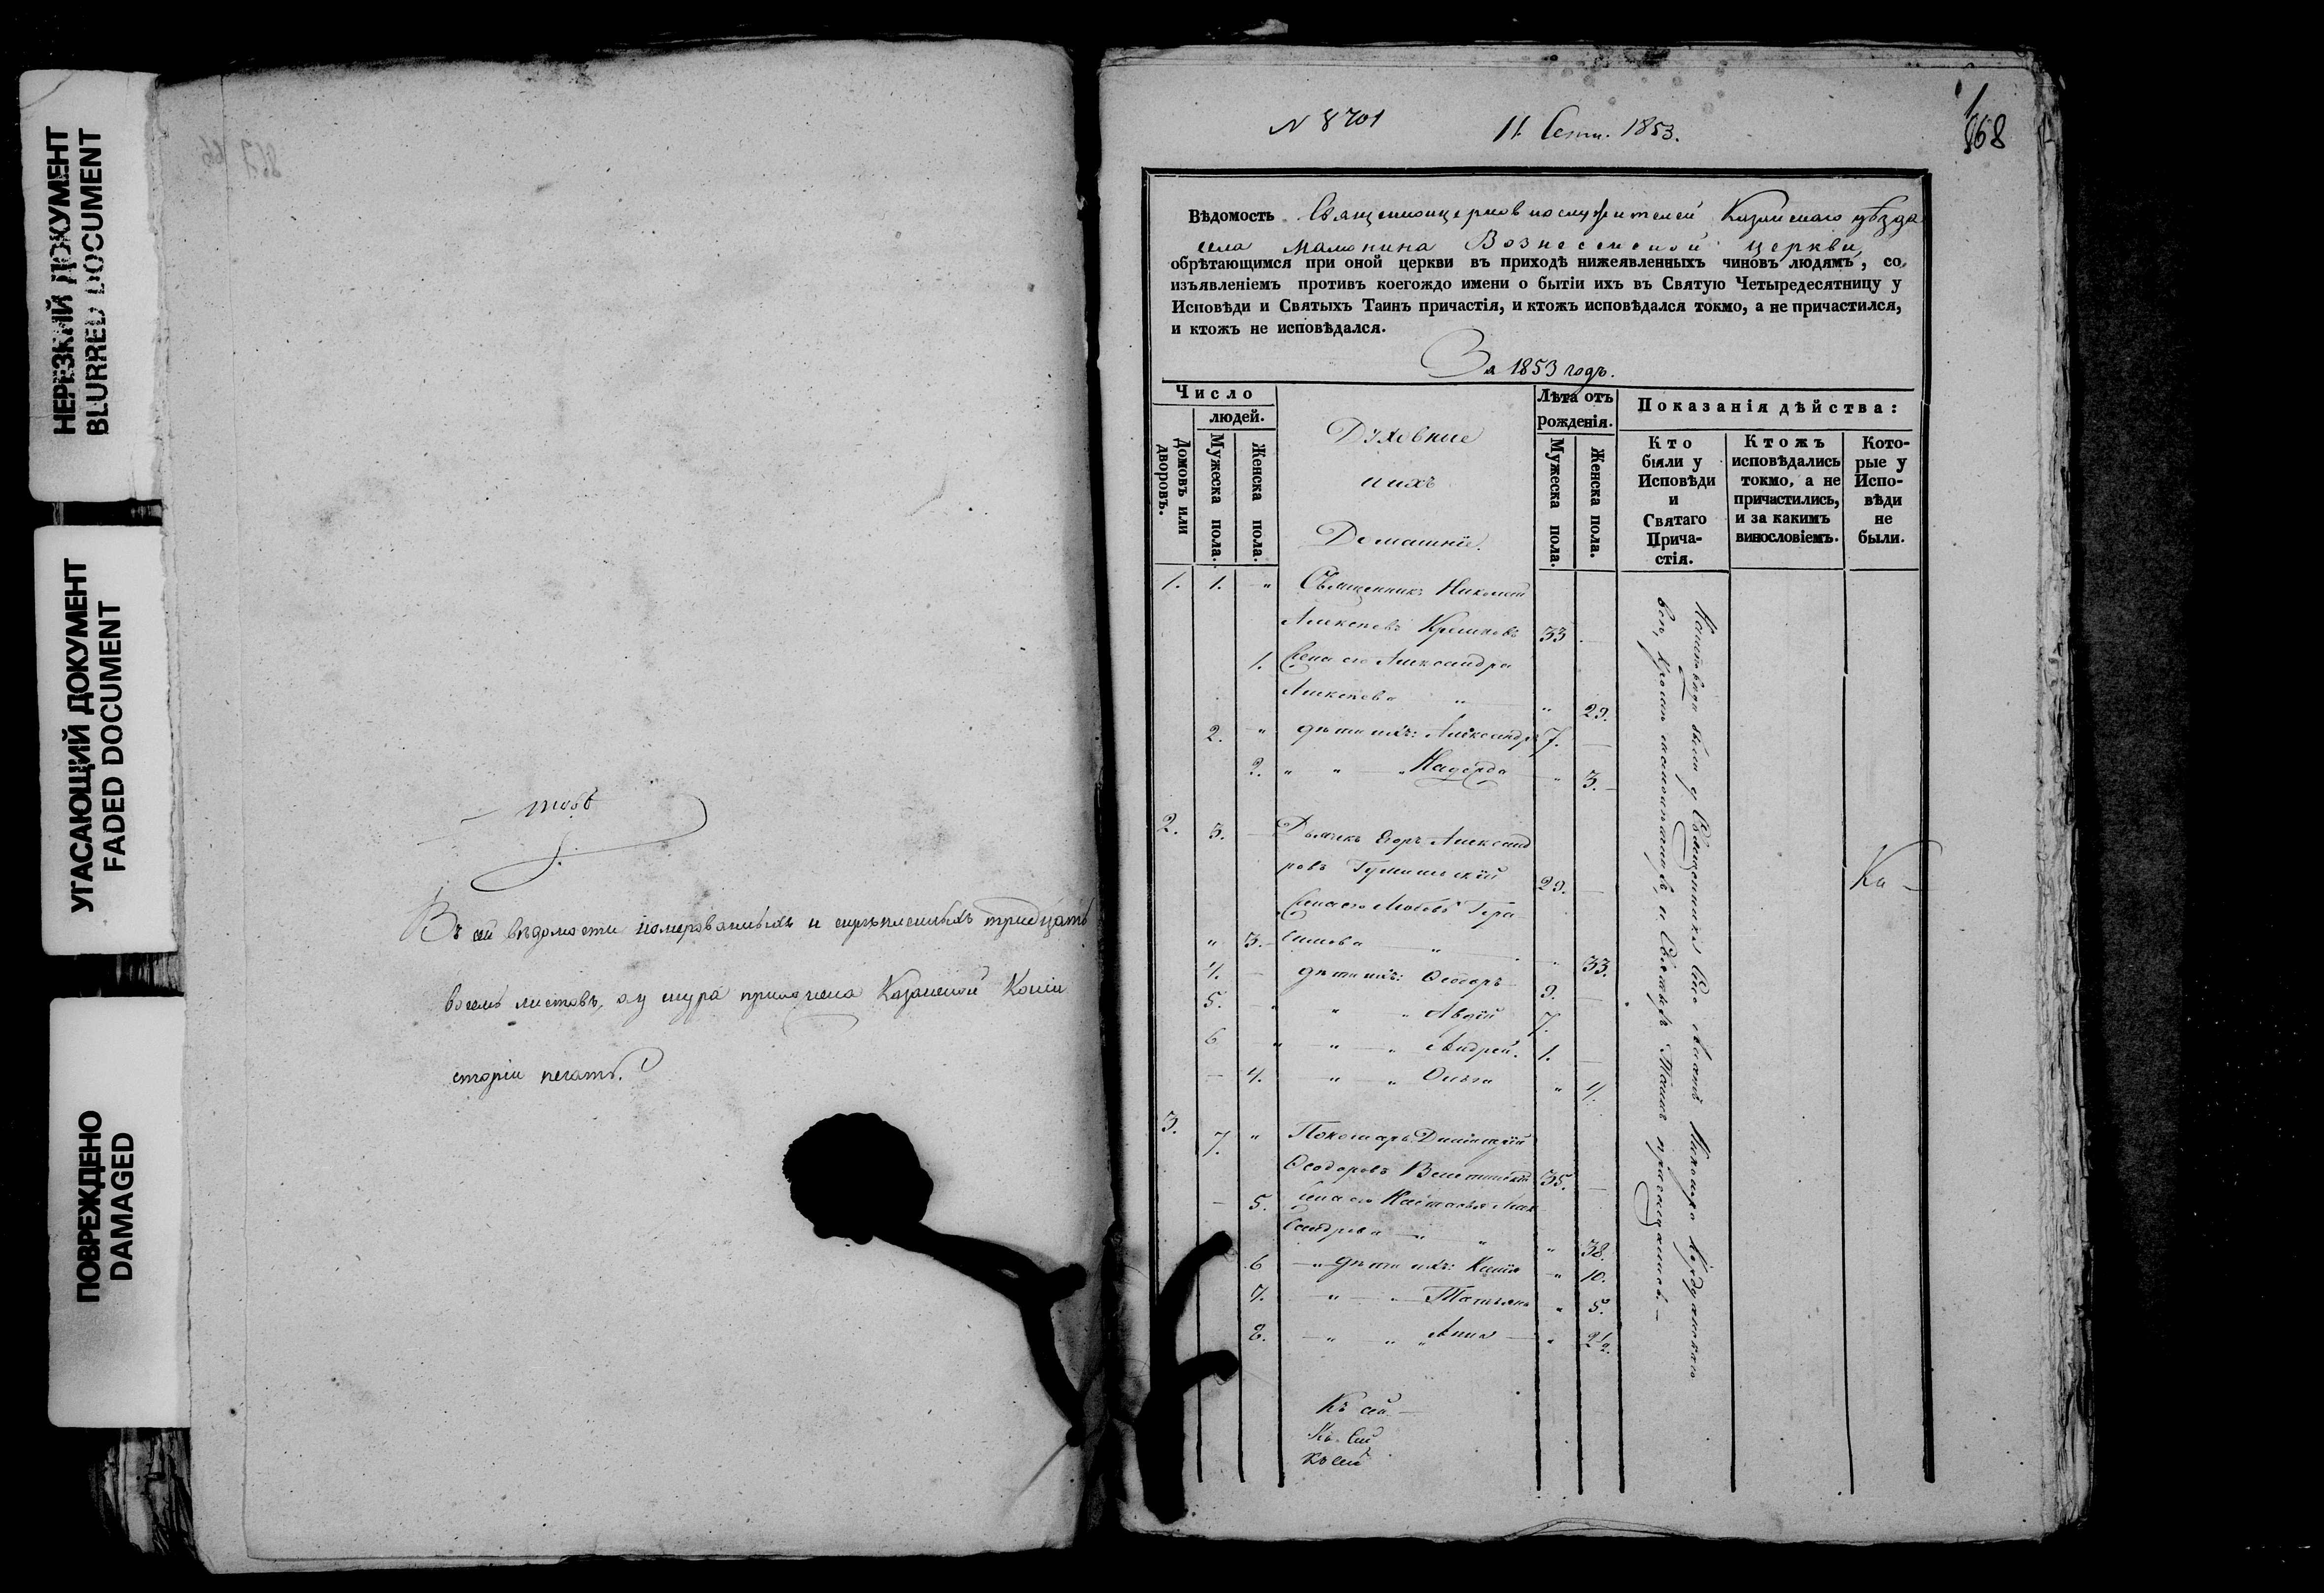 НЕРЕЗКИЙ ДОКУМЕНТ
BLURRED DOCUMENT
УГАСАЮЩИЙ ДОКУМЕНТ
FADED DOCUMENT
ПОВРЕЖДЕНО
DAMAGED
Въ сей вѣдомости номерованныхъ и скрѣпленныхъ тридцать
восемь листовъ, а у шнура приложена Казанской Конси
сторіи печать.
N 8701
11 Сент. 1853.
868
Вѣдомость Священноцерковнослужителей Казанскаго уѣзда
села Мамонина Вознесенской церкви,
обрѣтающимся при оной церкви въ приходѣ нижеявленныхъ чиновъ людямъ, со
изъявленіемъ противъ коегождо имени о бытіи ихъ въ Святую Четыредесятницу у
Исповѣди и Святыхъ Таинъ причастія, и ктожъ исповѣдался токмо, а не причастился,
и ктожъ не исповѣдался.
За 1853 годъ.
Число
людей.
Домовъ или дворовъ.
Мужеска пола.
Женска пола.
Духовные
и ихъ
Домашніе.
Лѣта отъ
рожденія.
Мужеска пола.
Женска пола.
Показанія дѣйства:
Кто
были у
Исповѣди
и
Святаго
Прича-
стія.
Ктожъ
исповѣдались
токмо, а не
причастились,
и за какимъ
винословіемъ.
Кото-
рые у
Испо-
вѣди
не
были.
1. 1. " Священникъ Николай
Алексѣевъ 33
1. Жена его Александра
Алексѣева " " 29.
2. " дѣти ихъ: Александръ 7. —
2. " " " Надежда " 3.
2. 3. — Дьячекъ Егоръ Александ
ровъ 29. —
Жена его Любовь Гера
" 3. симова " " 33.
4. — дѣти ихъ: Ѳеодоръ 9. —
5. " " " 7.
6 " " " Андрей. 1. —
— 4. " " Ольга " 4.
3. 7. " Пономарь Димитрій
Ѳеодоровъ 35. —
— 5. Жена его Настасья Алек
сандрова " " " 38.
6 " дѣти ихъ: " 10.
7. " " Татьяна " 5.
8. — " " " Анна — " 2½.
Ка —
Къ сей —
Къ Сей
Къ сей